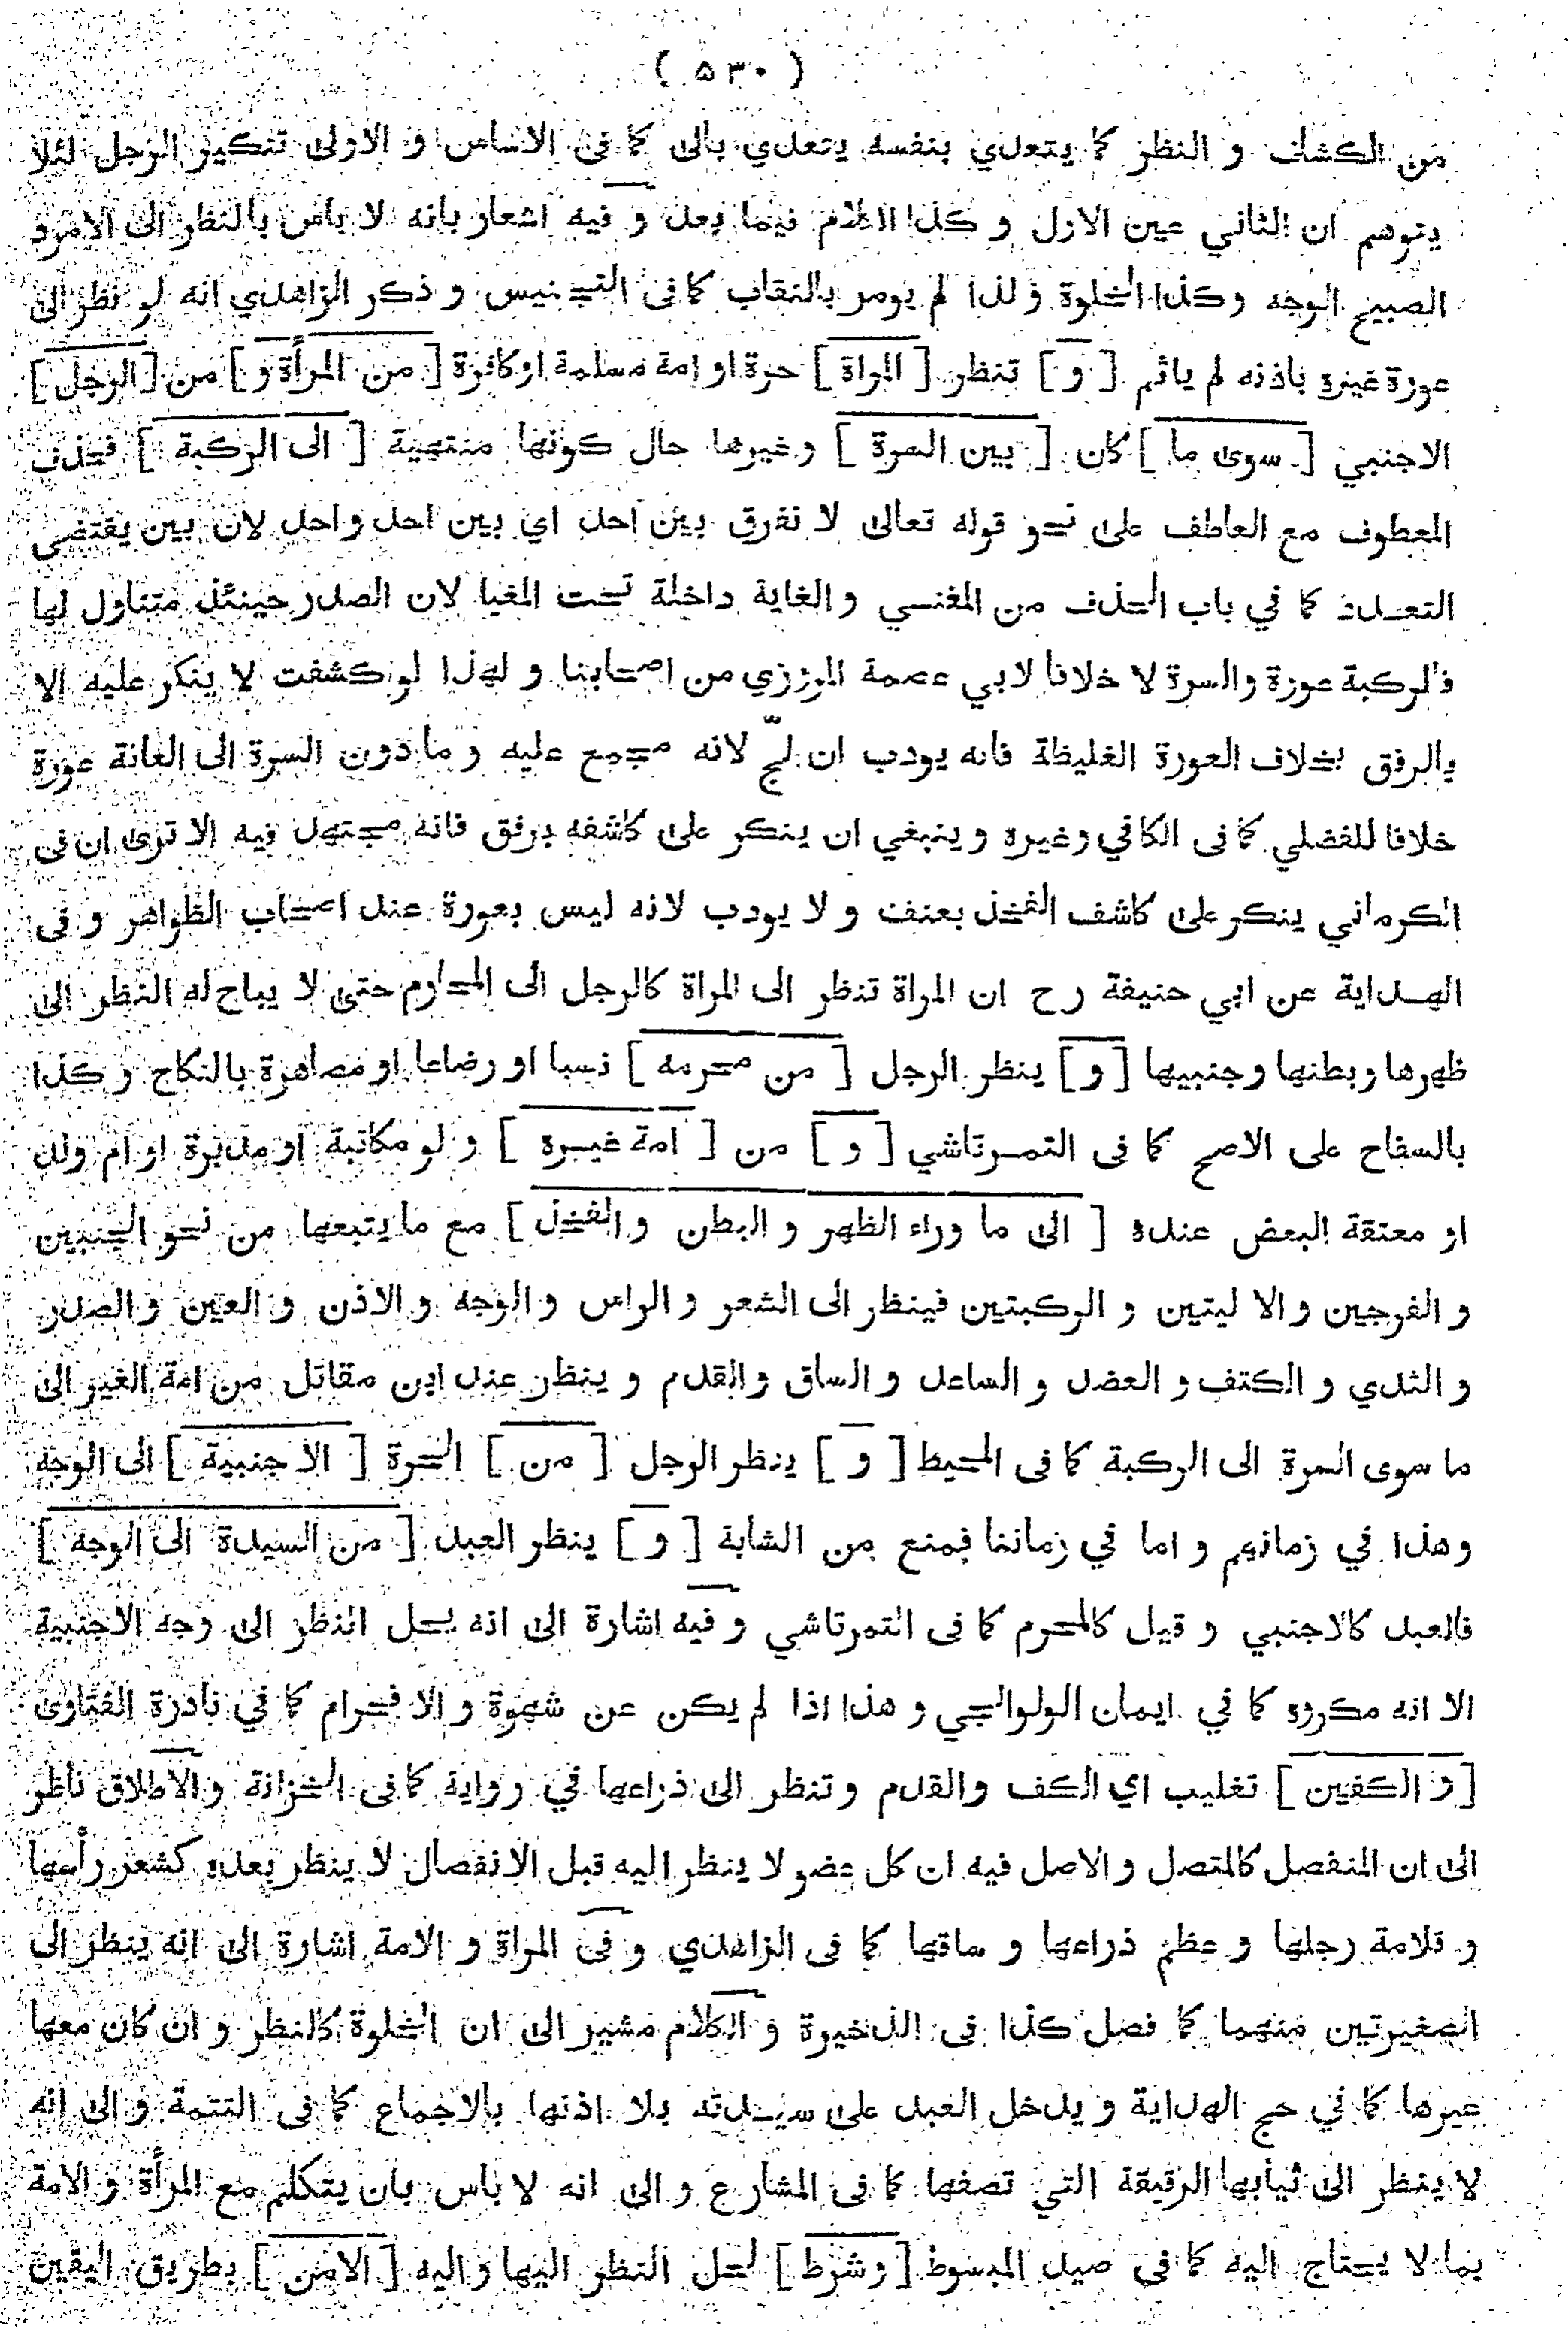 ( ۵۳۰ )
من الكشاف و النظر كما يتعدي بنفسه يتعدي بالى كما فى الاساس و الاولى تنكير الرجل لئلا
يتوهم ان الثاني عين الاول و كذا الكلام فيما بعد و فيه اشعار بانه لا باس بالنظر الى الامرد
الصبيح الوجه وكذا الخلوة و لذا لم يومر بالنقاب كما فى التجنيس و ذكر الزاهدي انه لو نظر الى
عورة غيره باذنه لم ياثم [ و ] تنظر [ المراة ] حرة او امة مسلمة او كافرة [ من المرأة و ] من [ الرجل ]
الاجنبي [ سوى ما ] كان [ بين السرة ] وغيرها حال كونها منتهية [ الى الركبة ] فحذف
المعطوف مع العاطف على نحو قوله تعالى لا نفرق بين احد اي بين احد واحد لان بين يقتضى
التعدد كما في باب الحذف من المغنى و الغاية داخلة تحت المغيا لان الصدر حينئذ متناول لها
فالركبة عورة والسرة لا خلافا لابي عصمة المروزي من اصحابنا و لهذا لو كشفت لا ينكر عليه الا
بالرفق بخلاف العورة الغليظة فانه يودب ان لجّ لانه مجمع عليه و ما دون السرة الى العانة عورة
خلافا للفضلي كما فى الكافي وغيره وينبغي ان ينكر على كاشفه برفق فانه مجتهد فيه الا ترى ان فى
الكرماني ينكر على كاشف الفخذ بعنف و لا يودب لانه ليس بعورة عند اصحاب الظواهر و فى
الهداية عن ابي حنيفة رح ان المراة تنظر الى المراة كالرجل الى المحارم حتى لا يباح له النظر الى
ظهرها وبطنها وجنبيها [ و ] ينظر الرجل [ من محرمه ] نسبا او رضاعا او مصاهرة بالنكاح وكذا
بالسفاح على الاصح كما فى التمرتاشي [ و ] من [ امة غيره ] و لو مكاتبة او مدبرة او ام ولد
او معتقة البعض عنده [ الى ما وراء الظهر و البطن و الفخذ ] مع ما يتبعها من نحو الجنبين
و الفرجين و الا ليتين و الركبتين فينظر الى الشعر و الراس و الوجه و الاذن و العين و الصدر
و الثدي و الكتف و العضد و الساعد و الساق و القدم و ينظر عند ابن مقاتل من امة الغير الى
ما سوى السرة الى الركبة كما فى المحيط [ و ] ينظر الرجل [ من ] الحرة [ الاجنبية ] الى الوجه
وهذا في زمانهم و اما في زماننا فمنع من الشابة [ و ] ينظر العبد [ من السيدة الى الوجه ]
فالعبد كالاجنبي و قيل كالمحرم كما فى التمرتاشي و فيه اشارة الى انه يحل النظر الى وجه الاجنبية
الا انه مكروه كما في ايمان الولوالجي و هذا اذا لم يكن عن شهوة و الا فحرام كما في نادرة الفتاوى
[ و الكفين ] تغليب اي الكف والقدم وتنظر الى ذراعها في رواية كما فى الخزانة و الاطلاق ناظر
الى ان المنفصل كالمتصل و الاصل فيه ان كل عضو لا ينظر اليه قبل الانفصال لا ينظر بعده كشعر رأسها
و قلامة رجلها و عظم ذراعها و ساقها كما فى الزاهدي و فى المراة و الامة اشارة الى انه ينظر الى
الصغيرتين منهما كما فصل كذا فى الذخيرة و الكلام مشير الى ان الخلوة كالنظر و ان كان معها
غيرها كما في حج الهداية و يدخل العبد على سيدته بلا اذنها بالاجماع كما فى التتمة و الى انه
لا ينظر الى ثيابها الرقيقة التي تصفها كما فى المشارع و الى انه لا باس بان يتكلم مع المرأة و الامة
بما لا يحتاج اليه كما فى صيد المبسوط [ وشرط ] لحل النظر اليها واليه [ الامن ] بطريق اليقين